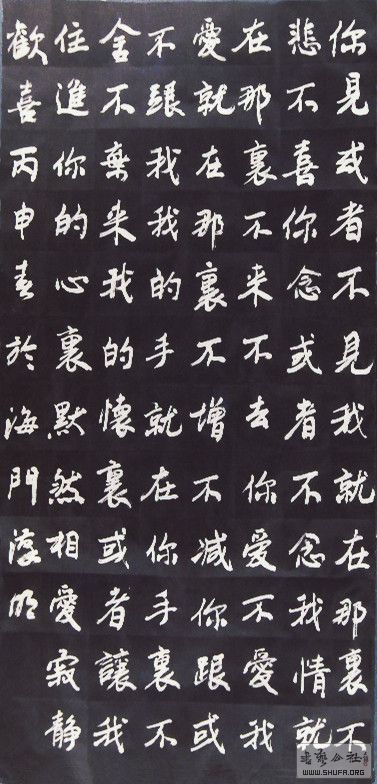 你見或者不見我就在那裏不
悲不喜你念或者不念我情就
在那裏不来不去你爱不愛我
愛就在那裏不增不减你跟或
不跟我我的手就在你手裏不
舍不棄来我的懷裏或者讓我
住進你的心裏默然相愛寂静
歡喜丙申春於海門
书艺公社
WWW.SHUFA.ORG